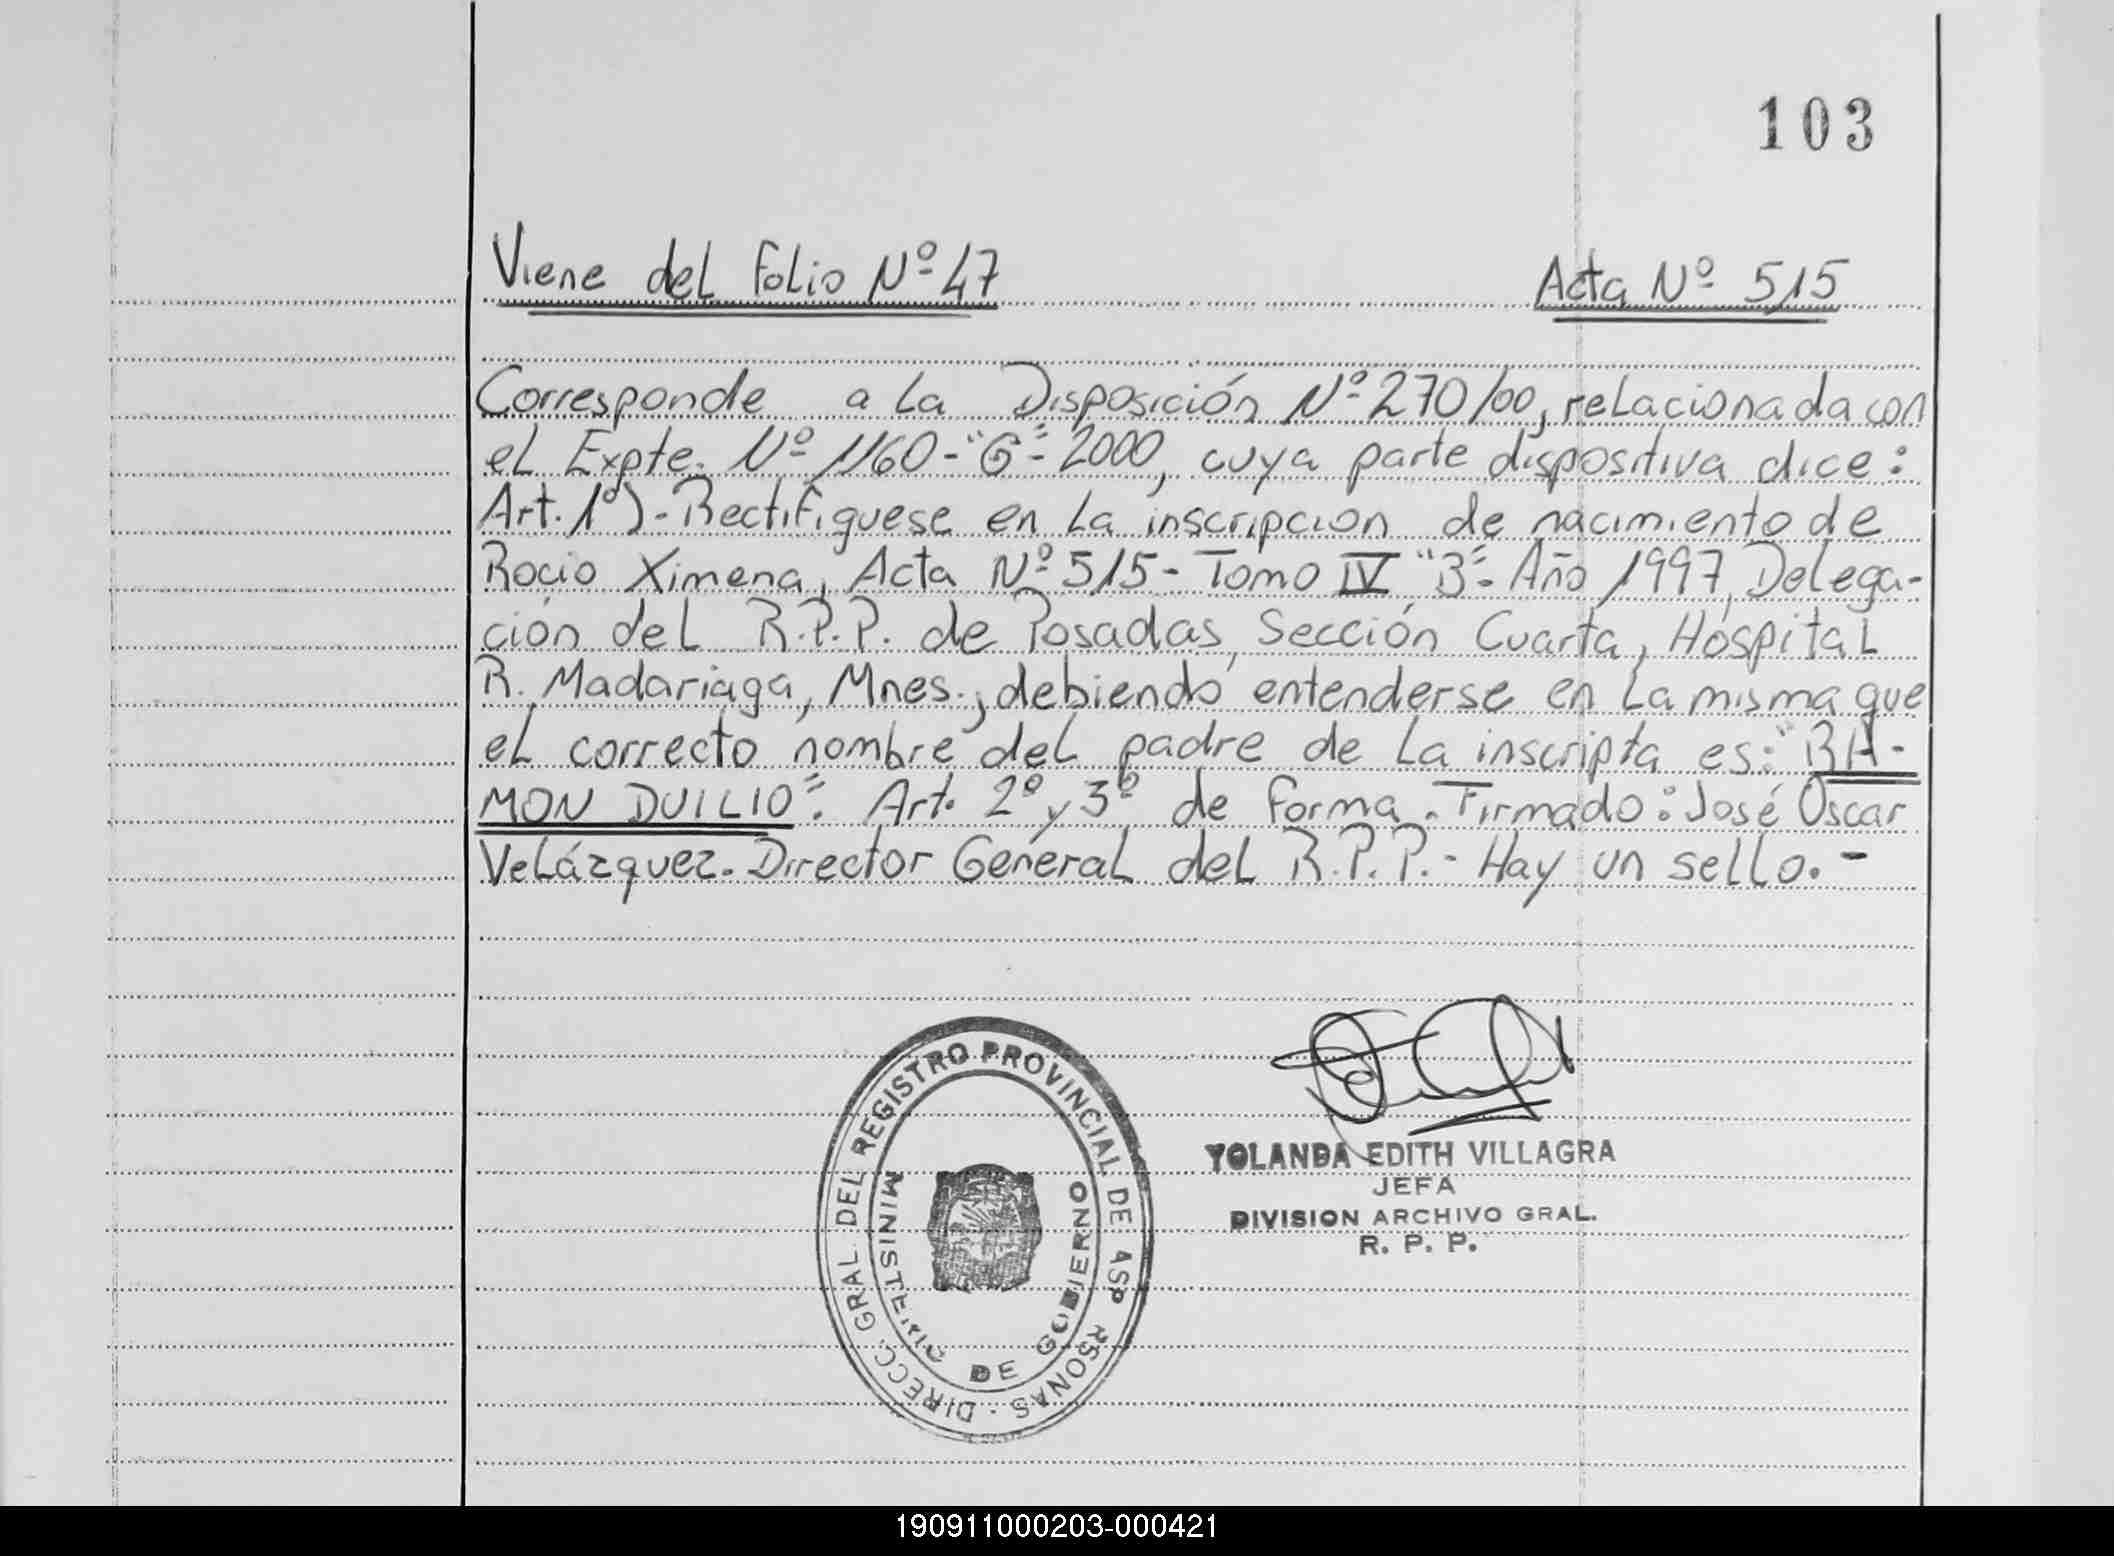 103
Viene del Folio Nº 47 Acta Nº 515
Corresponde a la Disposición Nº 270/00, relacionada con
el Expte. Nº 1160-"G"-2000, cuya parte dispositiva dice:
Art. 1º).- Rectifiquese en la inscripcion de nacimiento de
Rocio Ximena, Acta Nº 515 - Tomo IV "B"- Año 1997, Delega-
ción del R.P.P. de Posadas, Sección Cuarta, Hospital
R. Madariaga, Mnes.; debiendo entenderse en la misma que
el correcto nombre del padre de la inscripta es: "RA-
MON DUILIO". Art. 2º y 3º de forma. Firmado: José Oscar
Velázquez. Director General del R.P.P.- Hay un sello.-
DIRECC. GRAL. DEL REGISTRO PROVINCIAL DE
MINISTERIO DE GOBIERNO
YOLANDA EDITH VILLAGRA
JEFA
DIVISION ARCHIVO GRAL.
R. P. P.
190911000203-000421